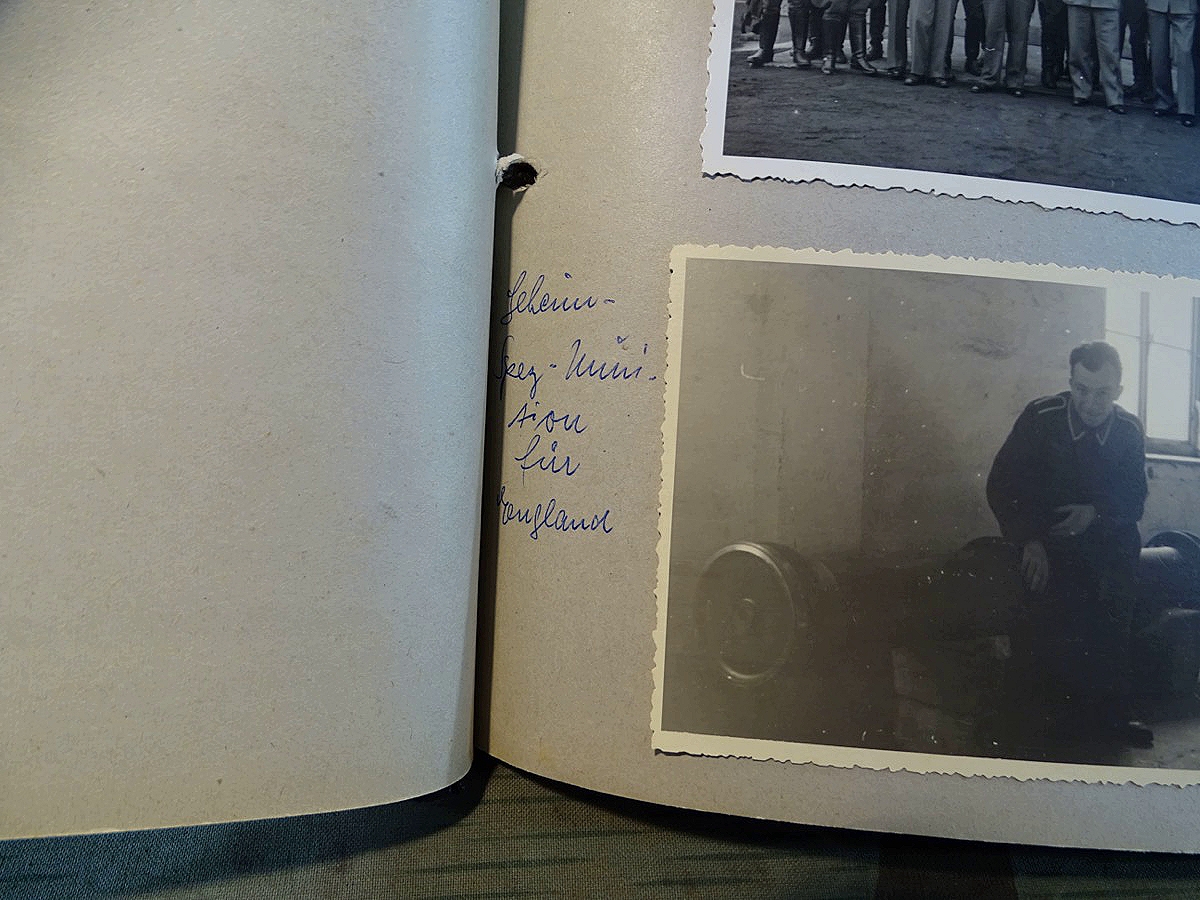 Geheim-
Spez-Muni-
tion
für
England